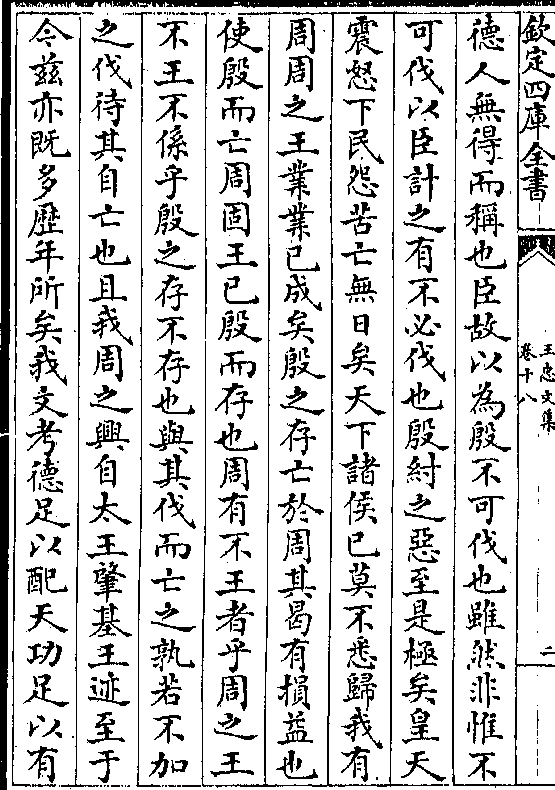 欽定四庫全書
王忠文集
卷十八
二
德人無得而稱也臣故以為殷不可伐也雖然非惟不
可伐以臣計之有不必伐也殷紂之惡至是極矣皇天
震怒下民怨苦亡無日矣天下諸侯已莫不悉歸我有
周周之王業業已成矣殷之存亡於周其曷有損益也
使殷而亡周固王已殷而存也周有不王者乎周之王
不王不係乎殷之存不存也與其伐而亡之孰若不加
之伐待其自亡也且我周之興自太王肇基王迹至于
今茲亦既多歷年所矣我文考德足以配天功足以有